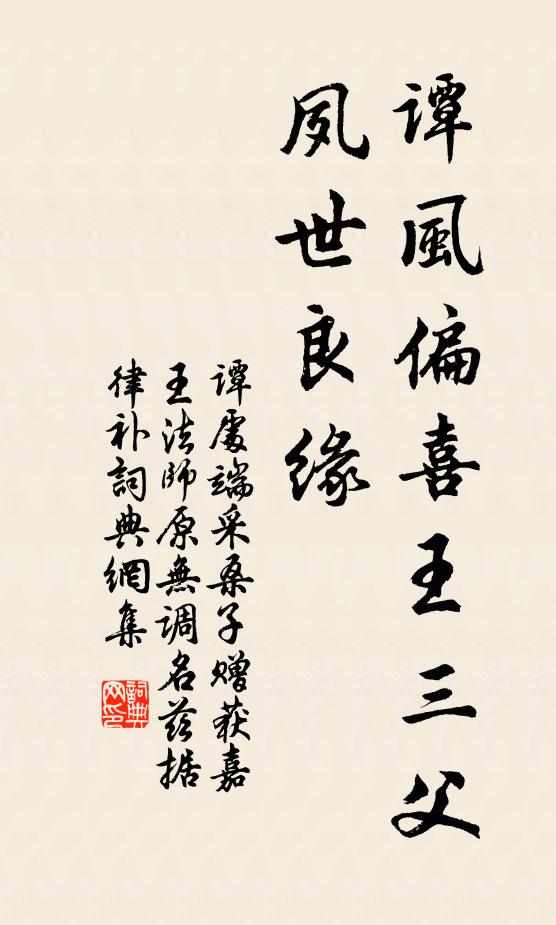 谭風偏喜王三父
夙世良緣
谭處端采桑子赠获嘉
王法師原無调名兹据
律补詞典網集
詞典
网印